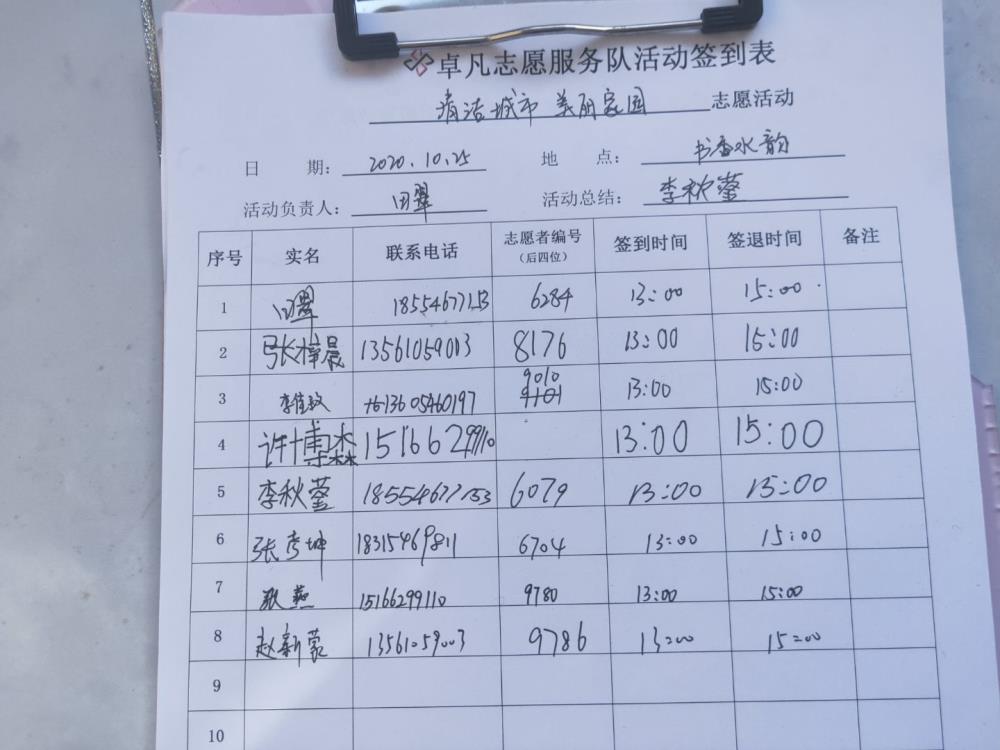 卓凡志愿服务队活动签到表
清洁城市 美丽家园 志愿活动
日 期: 2020.10.25 地 点: 书香水韵
活动负责人: 田翠 活动总结: 李秋蓥
序号 实名 联系电话 志愿者编号(后四位) 签到时间 签退时间 备注
1 田翠 18554677153 6284 13:00 15:00
2 张梓晨 13561059003 8176 13:00 15:00
3 李佳玟 13605460197 9010 13:00 15:00
4 许博森 15166299110 13:00 15:00
5 李秋蓥 18554677153 6079 13:00 15:00
6 张彦坤 18315469811 6704 13:00 15:00
7 燕 15166299110 9780 13:00 15:00
8 赵新蒙 13561059003 9786 13:00 15:00
9
10